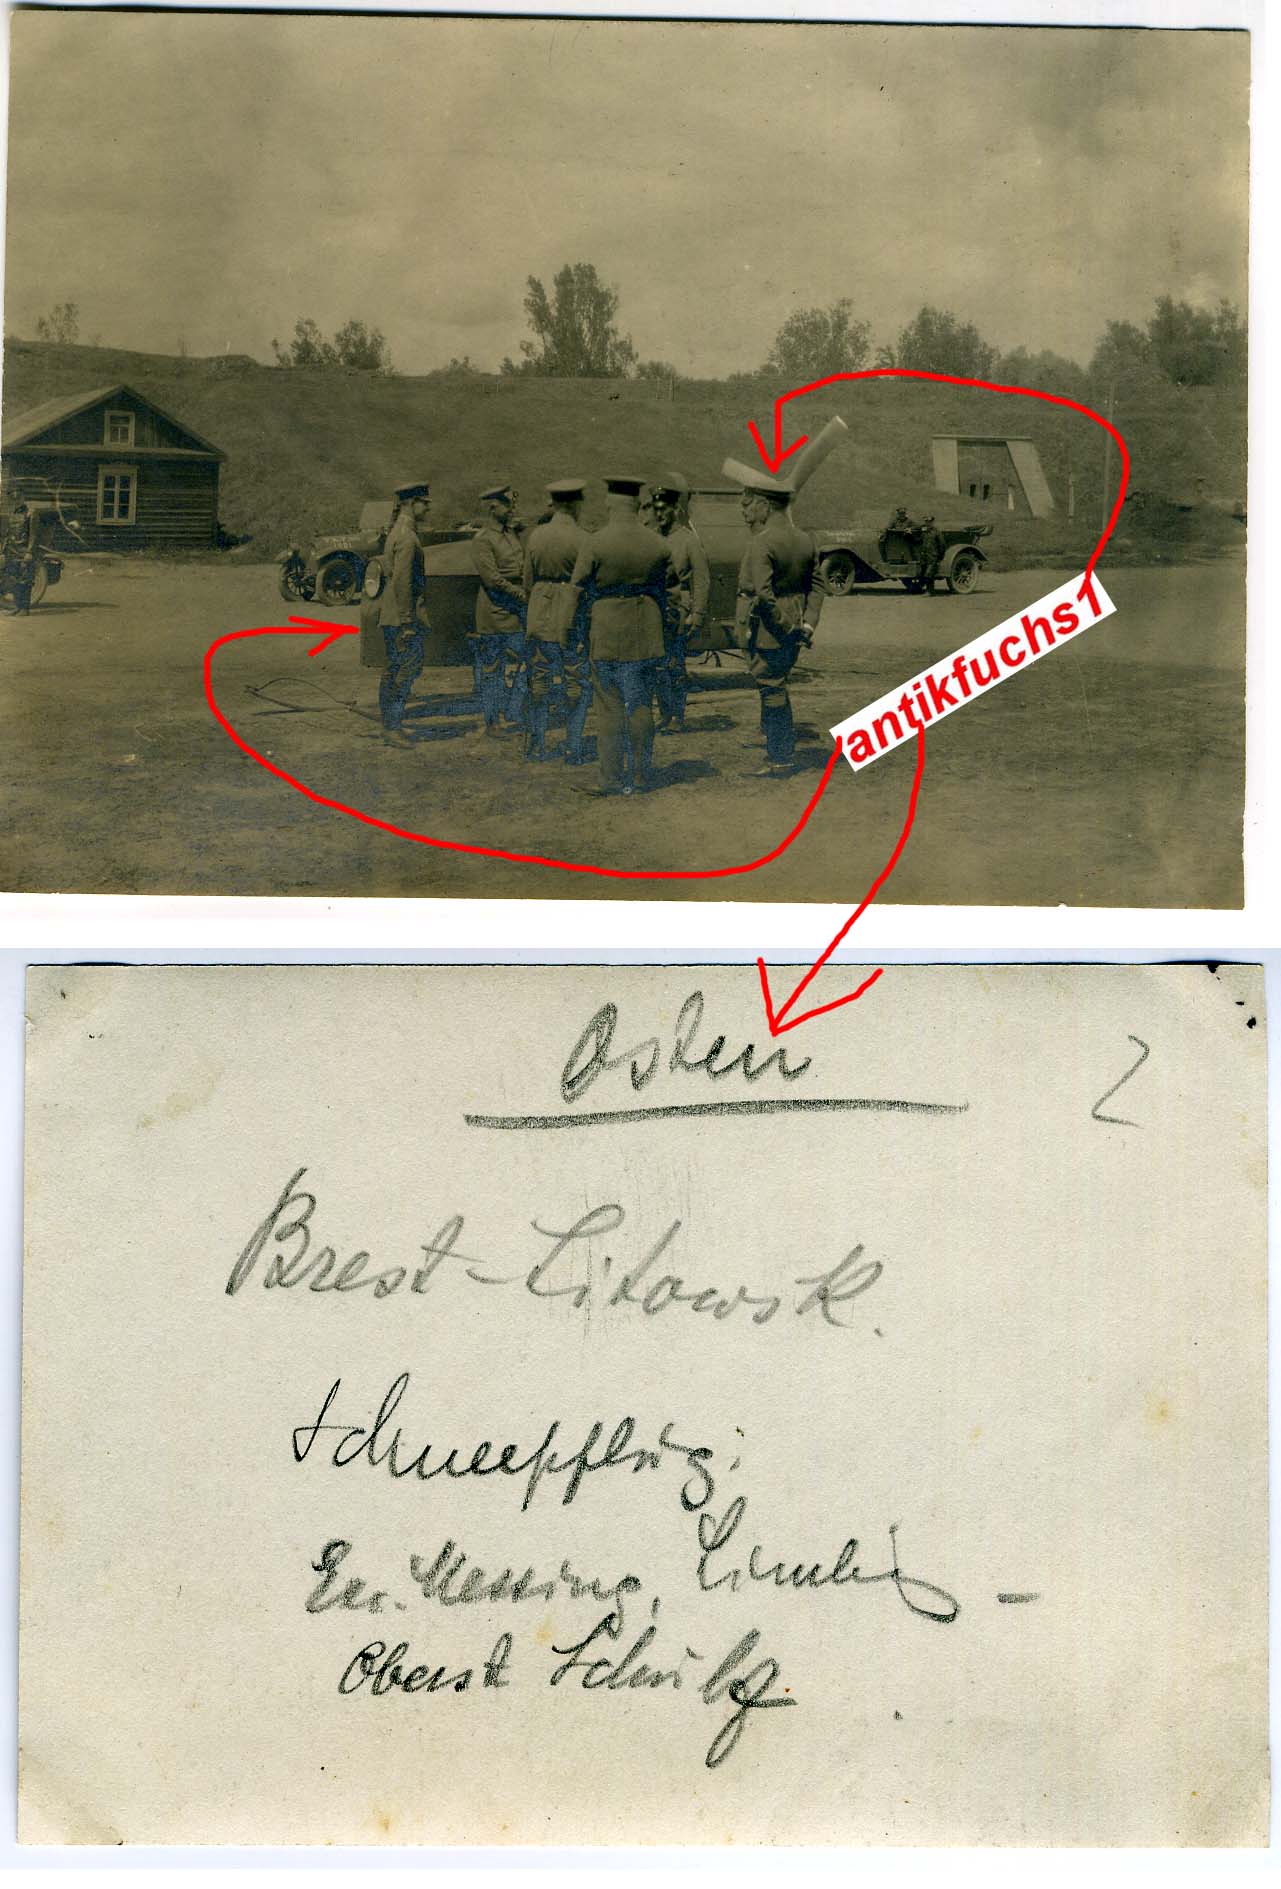 antikfuchs1
Osten
Brest-Litowsk.
Schneepflug.
Exz. Messing,
Oberst Schultz